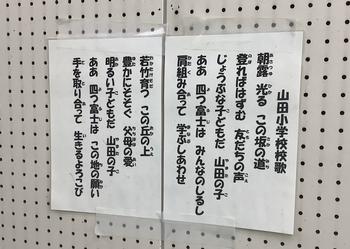 山田小学校校歌
朝露 光る この坂の道
登ればはずむ 友だちの声
じょうぶな子どもだ 山田の子
ああ 四つ富士は みんなのしるし
肩組み合って 学ぶしあわせ
若竹育つ この丘の上
豊かにそそぐ 父母の愛
明るい子どもだ 山田の子
ああ 四つ富士は この地の願い
手を取り合って 生きるよろこび